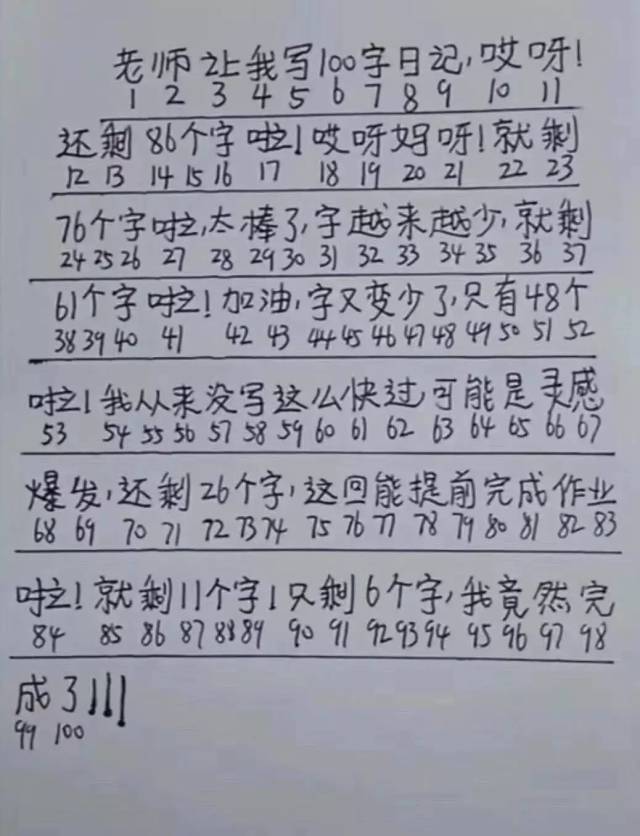 老师让我写100字日记,哎呀!
1 2 3 4 5 6 7 8 9 10 11
还剩86个字啦!哎呀妈呀!就剩
12 13 14 15 16 17 18 19 20 21 22 23
76个字啦,太棒了,字越来越少,就剩
24 25 26 27 28 29 30 31 32 33 34 35 36 37
61个字啦!加油,字又变少了,只有48个
38 39 40 41 42 43 44 45 46 47 48 49 50 51 52
啦!我从来没写这么快过可能是灵感
53 54 55 56 57 58 59 60 61 62 63 64 65 66 67
爆发,还剩26个字,这回能提前完成作业
68 69 70 71 72 73 74 75 76 77 78 79 80 81 82 83
啦!就剩11个字!只剩6个字,我竟然完
84 85 86 87 88 89 90 91 92 93 94 95 96 97 98
成了!!!
99 100